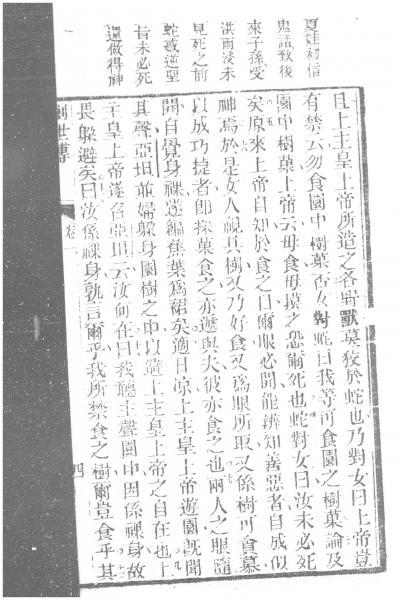 夏娃初信
鬼話致後
來子孫受
洪雨淩未
見死之前
蛇惑逆聖
旨未必死
還做得神
且上主皇上帝所造之各獸莫狡於蛇也乃對女曰上帝豈
有禁云勿食園中樹菓否女對蛇曰我等可食園之樹菓論及
園中樹菓上帝云毋食毋摸之恐爾死也蛇對女曰汝未必死
矣原來上帝自知於食之日爾眼必開能辨知善惡者自成似
神焉於是女人視其樹又乃好食又為眼所取又係樹可貪慕
以成巧捷者即採菓食之亦遞與夫彼亦食之也兩人之眼隨
開自覺身裸遂編蕉葉為裙矣適日涼上主皇上帝遊園既聞
其聲亞坦並婦躲身園樹之中以避上主皇上帝之自在也上
主皇上帝遂名亞坦云汝何在曰我聽主聲園中因係裸身故
畏躲避矣曰汝係裸身孰言爾乎我所禁食之樹爾豈食乎其
創世傳
卷一
四